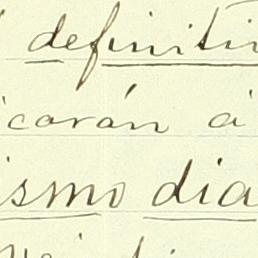 definiti
icarán á
ismo dia